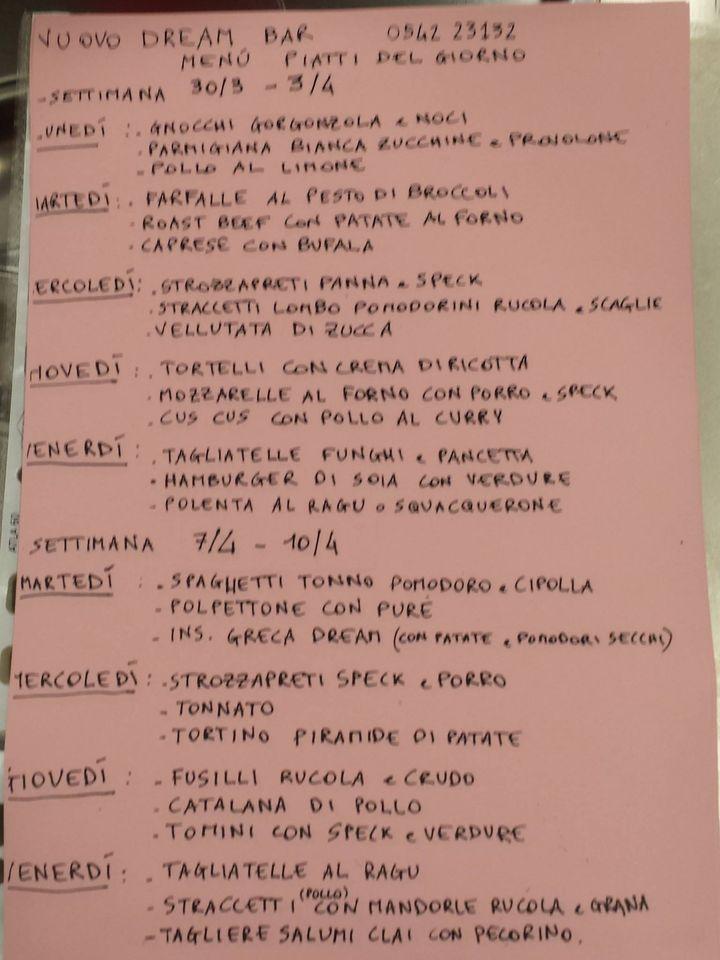 NUOVO DREAM BAR 0542 23132
MENÚ PIATTI DEL GIORNO
-SETTIMANA 30/3 - 3/4
LUNEDÍ : . GNOCCHI GORGONZOLA e NOCI
. PARMIGIANA BIANCA ZUCCHINE e PROVOLONE
- POLLO AL LIMONE
MARTEDÍ : . FARFALLE AL PESTO DI BROCCOLI
. ROAST BEEF CON PATATE AL FORNO
. CAPRESE CON BUFALA
MERCOLEDÍ : . STROZZAPRETI PANNA e SPECK
. STRACCETTI LOMBO POMODORINI RUCOLA e SCAGLIE
. VELLUTATA DI ZUCCA
GIOVEDÍ : . TORTELLI CON CREMA DI RICOTTA
. MOZZARELLE AL FORNO CON PORRO e SPECK
. CUS CUS CON POLLO AL CURRY
VENERDÍ : . TAGLIATELLE FUNGHI e PANCETTA
. HAMBURGER DI SOIA CON VERDURE
- POLENTA AL RAGU o SQUACQUERONE
SETTIMANA 7/4 - 10/4
MARTEDÍ : . SPAGHETTI TONNO POMODORO e CIPOLLA
- POLPETTONE CON PURÈ
- INS. GRECA DREAM (CON PATATE e POMODORI SECCHI)
MERCOLEDÍ : . STROZZAPRETI SPECK e PORRO
- TONNATO
- TORTINO PIRAMIDE DI PATATE
GIOVEDÍ : - FUSILLI RUCOLA e CRUDO
. CATALANA DI POLLO
. TOMINI CON SPECK e VERDURE
VENERDÍ : . TAGLIATELLE AL RAGU
- STRACCETTI (POLLO) CON MANDORLE RUCOLA e GRANA
- TAGLIERE SALUMI CLAI CON PECORINO.